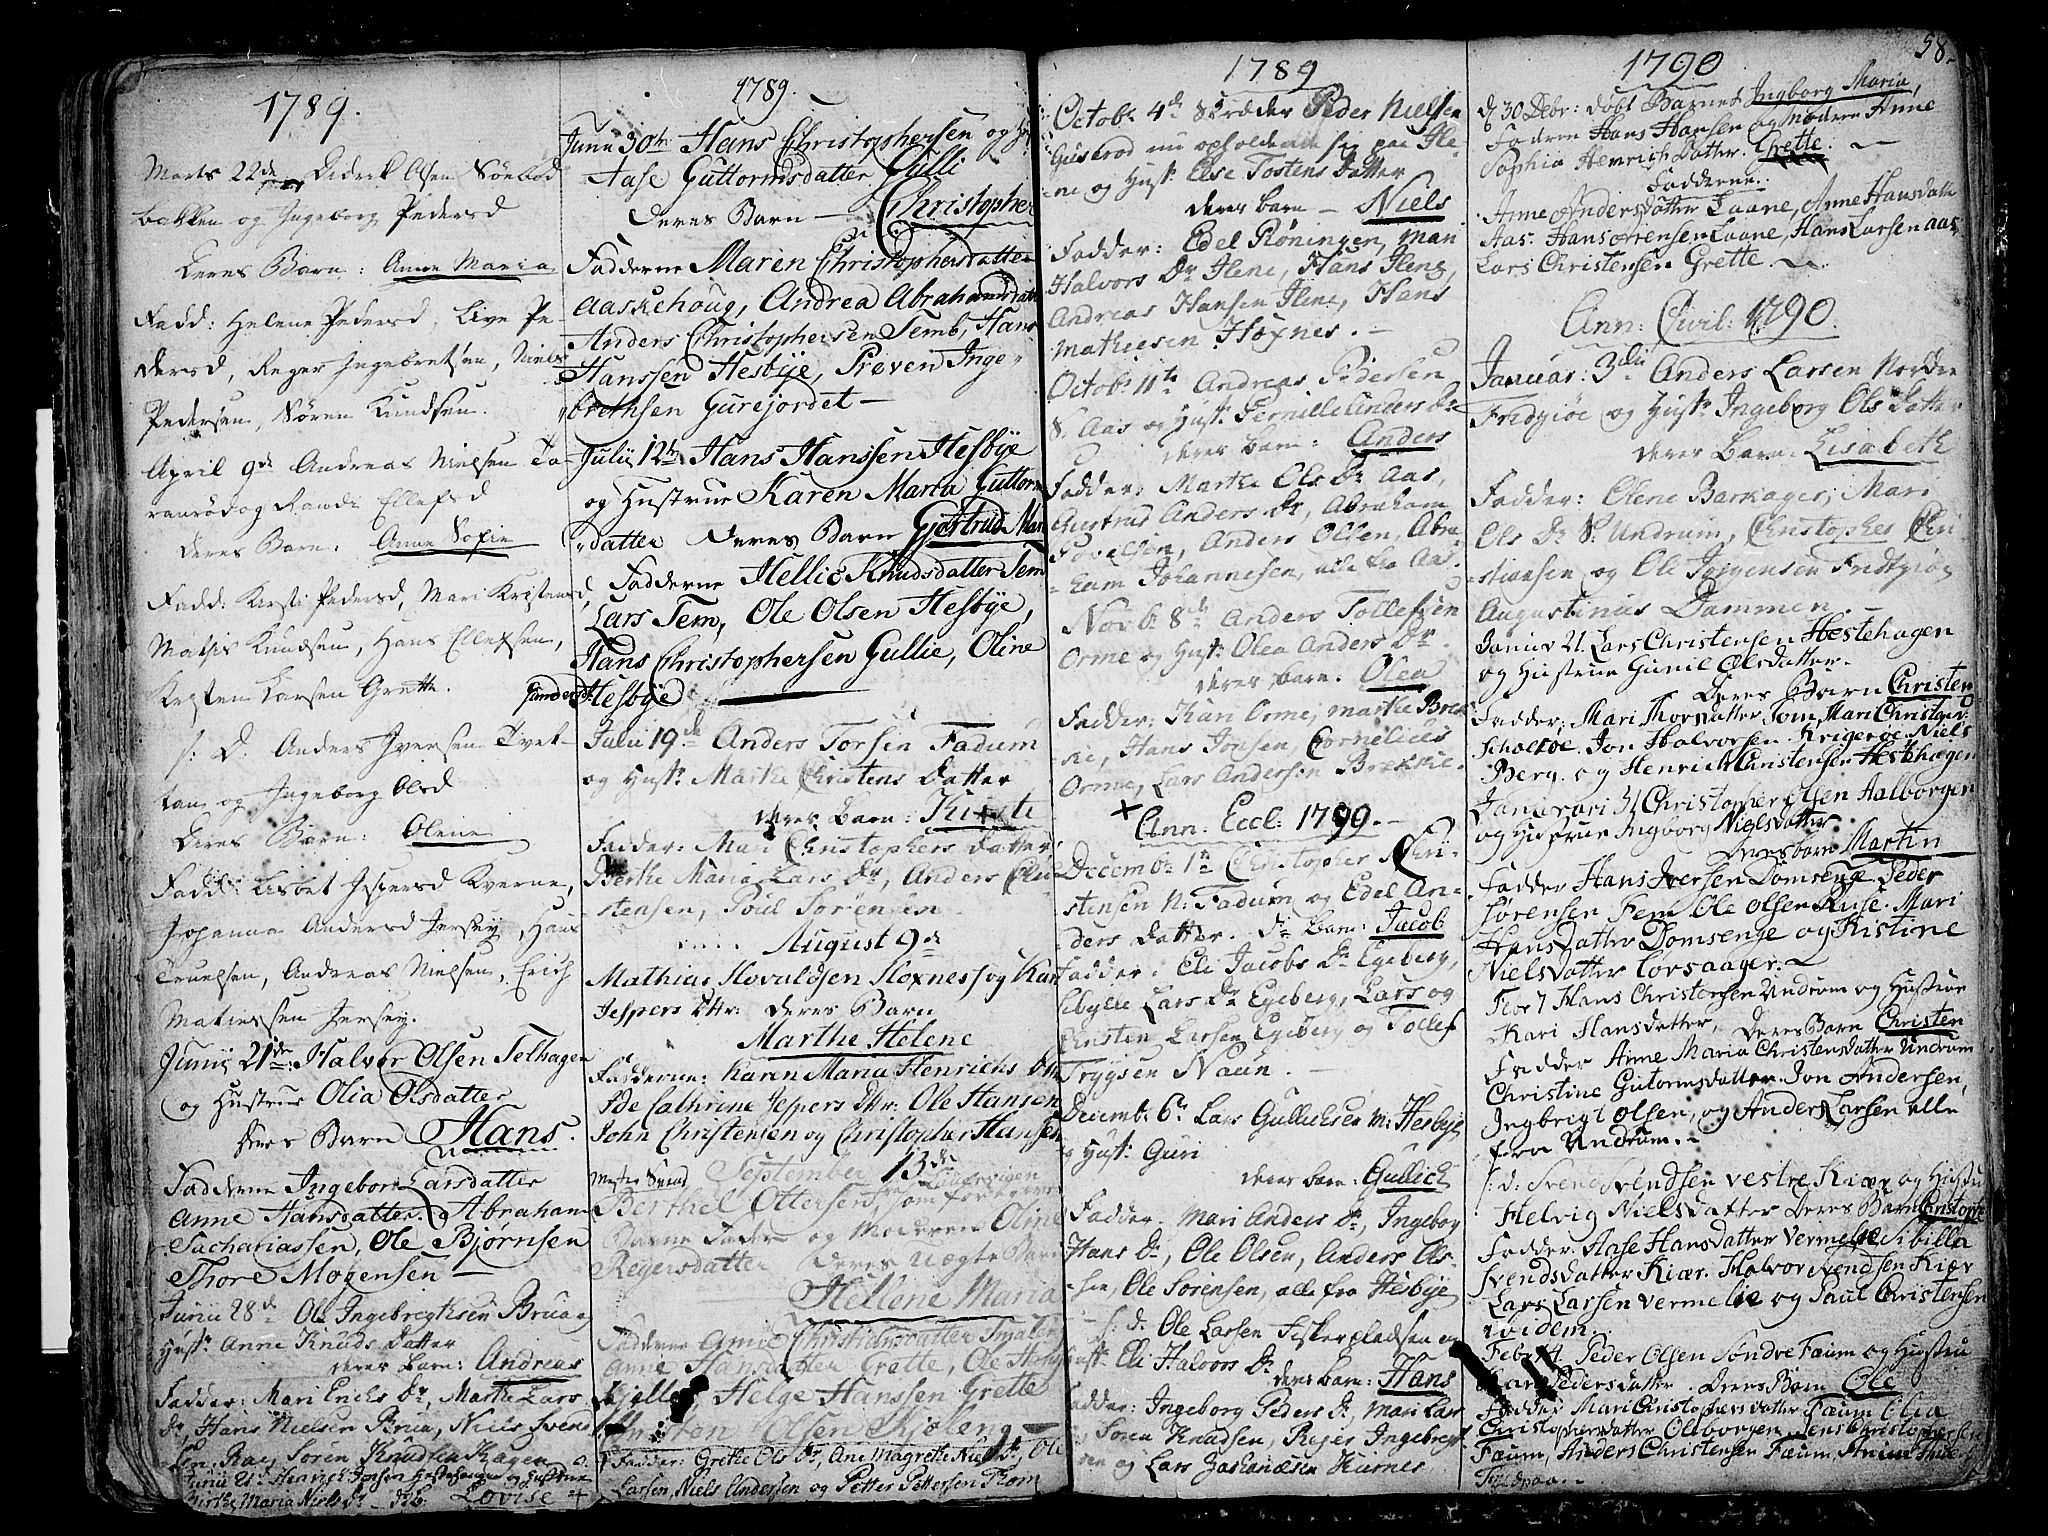 1789.
Marts 22de Didrik Olsen Sønbød
bakken og Ingeborg Pedersd
deres Barn: Anne Maria
Fadd: Helene Pedersd, Live Pe
dersd, Reger Ingebretsen, Niels
Pedersen, Søren Knudsen.
April 9de Andreas Nielsen Ta
ranrød og Randi Ellefsd
deres Barn: Anne Sofie
Fadd: Kirsti Pedersd, Mari Kristensd,
Mathis Knudsen, Hans Ellefsen,
Kresten Larsen Grette.
s: D. Anders Iversen Tvet-
tan og Ingeborg Olsd
Deres Barn: Olene
Fadd: Lisbet Jespersd Kverne,
Johanna Andersd Jersey, Hans
Truelsen, Andreas Nielsen, Erich
Matiessen Jersey.
Junij 21de: Halvor Olsen Selhagen
og Hustrue Olia Olsdatter
deres Barn Hans.
Fadderne Ingebor Larsdatter
Anne Hansdatter. og Abraham
Sachariassen, Ole Bjørnsen
Thore Mogensen —
Junii 28de Ole Ingebregthsen Brua og
Hust: Anne Knuds Datter
deres barn: Andreas
Fadder: Mari Erichs Dr, Marthe Lars
Dr, Hans Nielsen Brua, Niels Svend
sen Rae, Søren Knudsen Hagen
Henrich Jonsen Hestehagen og Hustrue
Birthe Maria Niels Dr — db. Lovise +
1789.
Junii 30te Hans Christophersen og H
Aase Guttormsdatter Gulli
deres Barn — Christopher
Fadderne Maren Christophersdatter
Aaskehoug, Andrea Abrahamsdatter
Anders Christophersen Temb, Hans
Hanssen Hesbye, Preven Inge
brethsen Gurejordet —
Julij 12te Hans Hanssen Hesbye
og Hustrue Karen Maria Guttorm
datter deres Barn Gjertrud Mari
Fadderne Hellie Knudsdatter Tem
Lars Tem, Ole Olsen Hesbye,
Hans Christophersen Gullie, Oline
Gundersd: Hesbye
Julii 19de Anders Torsen Fadum
og Hust: Marthe Christens Datter
deres Barn: Kirste
Fadder: Mari Christophers Datter,
Berthe Maria Lars Dr, Anders Chri-
stensen, Poul Sørensen
August 9de
Mathias Hovaldsen Hoxnes og Kari
Jespers Dttr: deres Barn
Marthe Helene
Fadderne: Karen Maria Henrichs Dttr
Ide Cathrine Jespers Dttr: Ole Hansen
John Christensen og Christopher Hansen
September 13de
Berthel Ottersen, som foregivne
Barne Fader og Moderen Oline
Reyersdatter deres uægte Barn
Hellene Maria
Fadderne Anne Christiansdatter
Anne Hansdatter Grette, Ole
Helge Hanssen Grette
Olsen Kjølberg —
Fadder: Grethe Ols Dr, Ane Magrethe Niels Dr, Ole
Larsen, Niels Andersen og Petter Pettersen Thom
1789
Octob: 4de Skræder Peder Nielsen
Gusrod nu opholdende sig paa Ile-
ne og Hust: Else Tostens Datter
deres barn — Niels
Fadder: Edel Røningen, Mari
Halvors Dr Ilene, Hans Ilene,
Andreas Hansen Ilene, Hans
Mathiesen Hoxnes. —
Octob: 11te Andreas Pedersen
S. Aas og Hust: Pernille Anders Dr
deres barn: Anders
Fadder: Marthe Ols Dr Aas,
Giertrud Anders Dr, Abraham
Povelsen, Anders Olsen, Abra-
ham Johannesen, alle fra Aas.
Novb: 8de Anders Tollefsen
Orme og Hust: Olea Anders Dr.
deres barn. Olea
Fadder: Kari Orme, Marthe Brek
ke, Hans Jonsen, Cornelius
Orme, Lars Andersen Brekke.
+ Ann. Eccl: 1790. —
Decemb: 1te Christopher Chri-
stensen N: Fadum og Edel An-
ders Datter. Ds barn: Jacob
Fadder: Eli Jacobs Dr Egeberg,
Sibylle Lars Dr Egeberg, Lars og
Kristen Larsen Egeberg og Tollef
Trygsen Naun. —
Decemb: 6te Lars Gullichsen M: Hesbye
og Hust: Guri
deres barn: Gullich
Fadder: Mari Anders Dr, Ingebor
Hans Dr, Ole Olsen, Anders Ol-
sen, Ole Sørensen, alle fra Hesbye
s: d: Ole Larsen Fiskerpladsen og
Hust: Eli Halvors Dr
deres barn: Hans
Fadder: Ingeborg Peders Dr, Mari Lars
Dr Søren Knudsen, Rejer Ingebregt
sen og Lars Johannesen Kurnes
1790
58.
d 30 Debr: døbt Barnet Ingborg Maria,
Fadren Hans Hansen og Modern Anne
Sophia Henrich Datter. Grette. —
Fadderne.
Anne Andersdatter Laane, Anne Hansdatter
Aas. Hans Sørensen Laane, Hans Larsen Aas,
Lars Christensen Grette.
Ann: Civil: 1790.
Januar: 3die Anders Larsen Nordre
Fredgiøe og Hust: Ingeborg Ols Datter
deres barn: Lisabeth
Fadder: Olene Barkager, Mari
Ols Dr S: Undrum, Christopher Chri-
stiansen og Ole Jørgensen Fredgiøe
Augustinus Dammen. —
Januar 21. Lars Christensen Hestehagen
og Hustrue Gunil Olsdatter.
Deres Barn Christen
Fadder: Mari Thorsdatter Tom, Mari Christopher:
Schaltøe. Jon Halvorsen Krigerøe. Niels
Berg. og Henrich Christensen Hestehagen
Januari 31 Christopher Olsen Aalborgen
og Hustrue Ingborg Nielsdatter
deres barn Martin
Fadder Hans Iversen Domsenge. Peder
Sørensen Fem Ole Olsen Ruse. Mari
Hansdatter Domsenge og Kistine
Nielsdatter Corsaager. —
Febr 7 Hans Christensen Undrum og Hustrue
Kari Hansdatter, Deres Barn Christen
Fadder Anne Maria Christensdatter Undrum
Christine Gutormsdatter. Jon Andersen,
Ingbrigt Olsen, og Anders Larsen alle
fra Undrum. —
s: d: Svend Svendsen vestre Kiær og Hustru
Helvig Nielsdatter Deres Barn Christopher
Fadder: Aase Hansdatter Vermelie Sibilla
Svendsdatter Kiær. Halvor Svendsen Kiær
Lars Larsen Vermelie og Paul Christensen
ibidem.
Febr 14 Peder Olsen Søndre Faum og Hustru
Pedersdatter. Deres Børn Ole
Fadder Mari Christophersdatter Faum Olia
Christophersdatter Olborgen Jens Christophersen
Faum, Anders Christensen Faum,